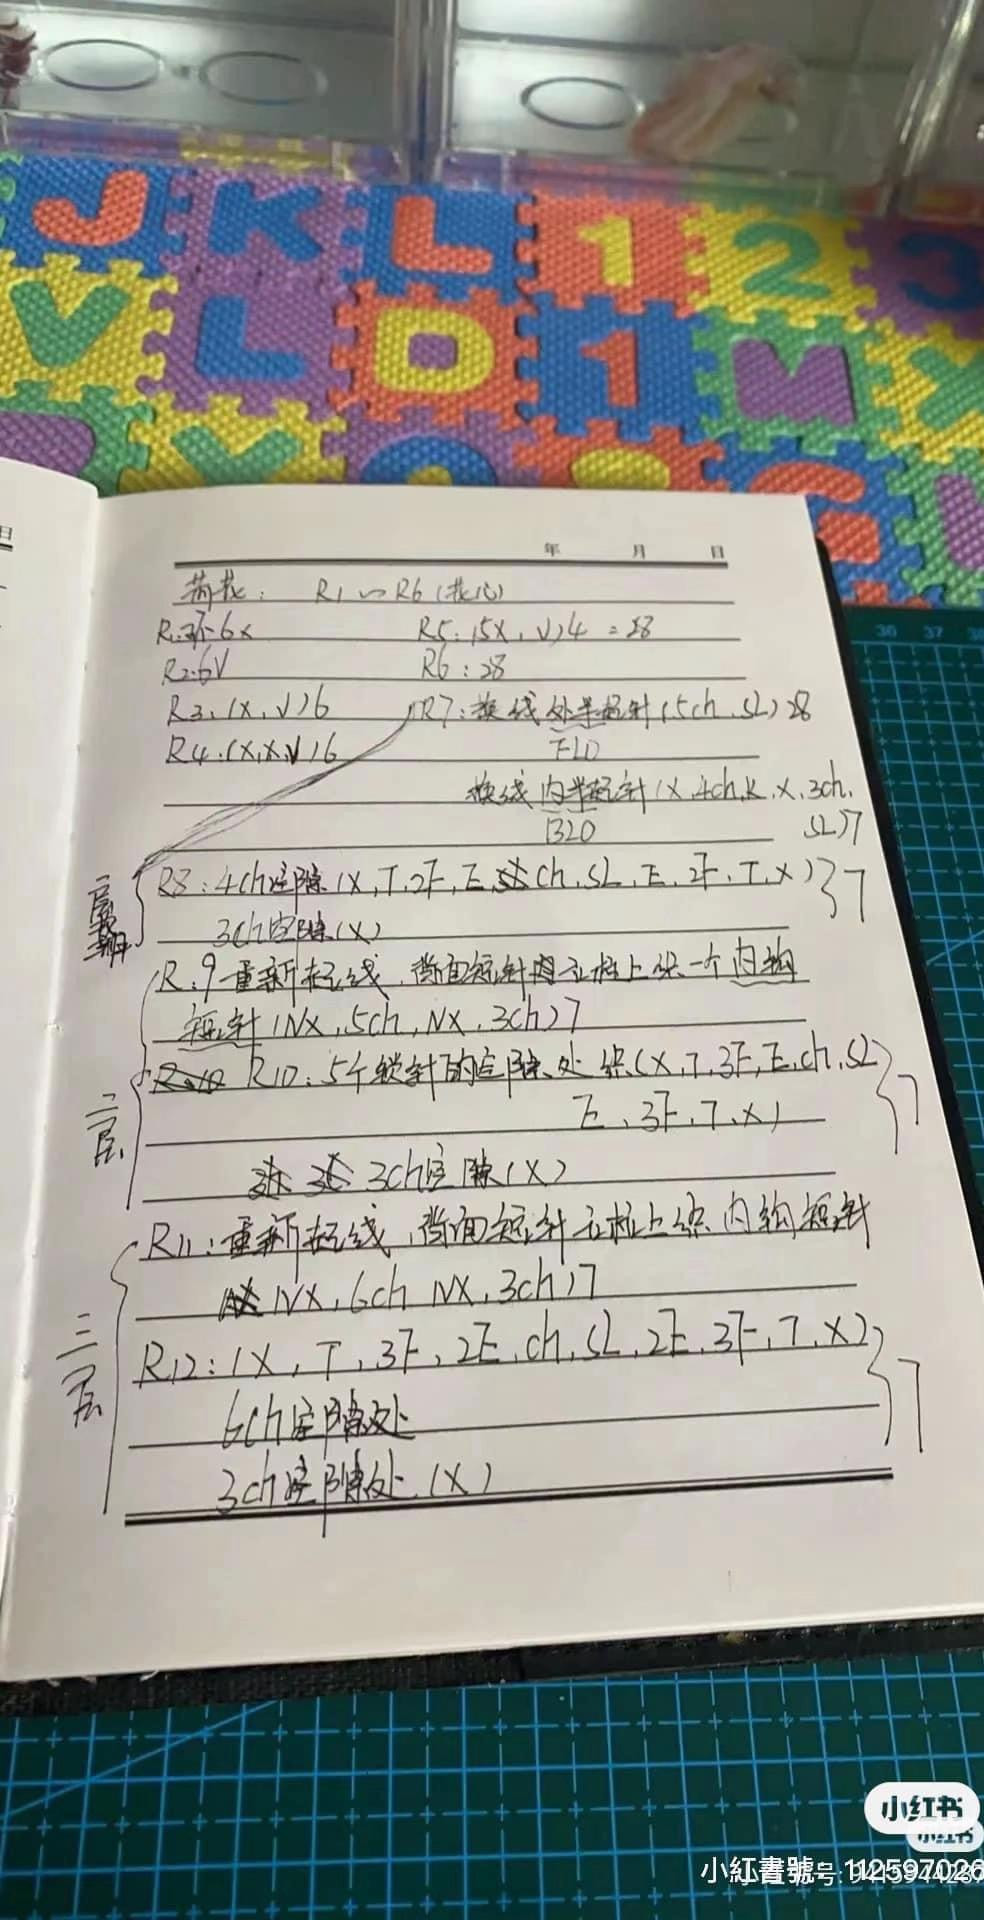 J K L 1 2 3
V L D 1 M X
日
年 月 日
荷花: R1～R6(花心)
R1:环6x R5:(5x,V)4=28
R2:6V R6:28
R3:(x,V)6 R7:换线外半起针(5ch,SL)28
R4:(x,x,V)6 FLO
换线内半起针(x,4ch,x,x,3ch,
BLO SL)7
一层花瓣
R8:4ch空隙(x,T,2F,E,ch,SL,E,2F,T,x) }7
3ch空隙(x)
R:9重新起线,背面短针立柱上织一个内钩
短针(Nx,5ch,Nx,3ch)7
二层
R10:5个锁针的空隙处织(x,T,3F,E,ch,SL
E,3F,T,x) }7
3ch空隙(x)
三层
R11:重新起线,背面短针立柱上织内钩短针
(Nx,6ch Nx,3ch)7
R12:(x,T,3F,2E,ch,SL,2E,3F,T,x) }7
6ch空隙处
3ch空隙处(x)
36 37 38
小红书
小紅書號: